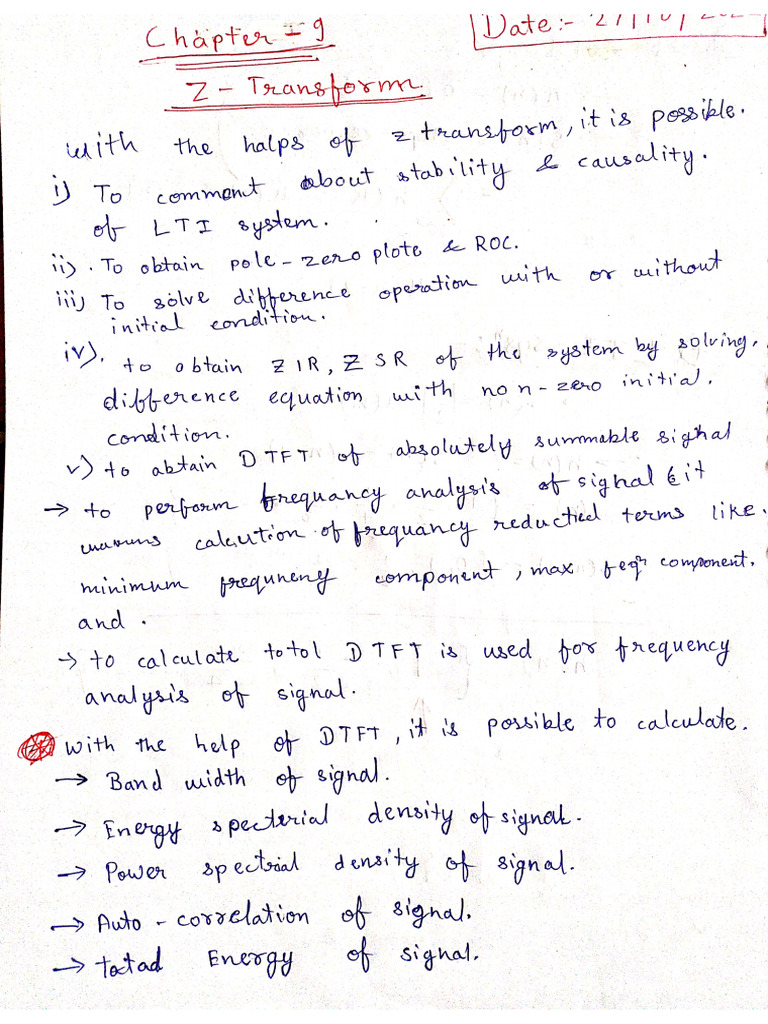 Chapter - 9
Date:- 27/10/202
Z - Transform
with the halps of z transform, it is possible.
i) To comment about stability & causality.
of LTI system.
ii). To obtain pole-zero plote & ROC.
iii) To solve difference operation with or without
initial condition.
iv). to obtain ZIR, ZSR of the system by solving.
difference equation with non-zero initial.
condition.
v) to abtain DTFT of absolutely summable signal
→ to perform frequancy analysis of signal (it
calcution of frequancy reductied terms like.
minimum frequneny component, max feqn component.
and .
→ to calculate totol DTFT is used for frequency
analysis of signal.
with the help of DTFT, it is possible to calculate.
→ Band width of signal.
→ Energy specterial density of signal.
→ Power spectrial density of signal.
→ Auto - correlation of signal.
→ Energy of signal.